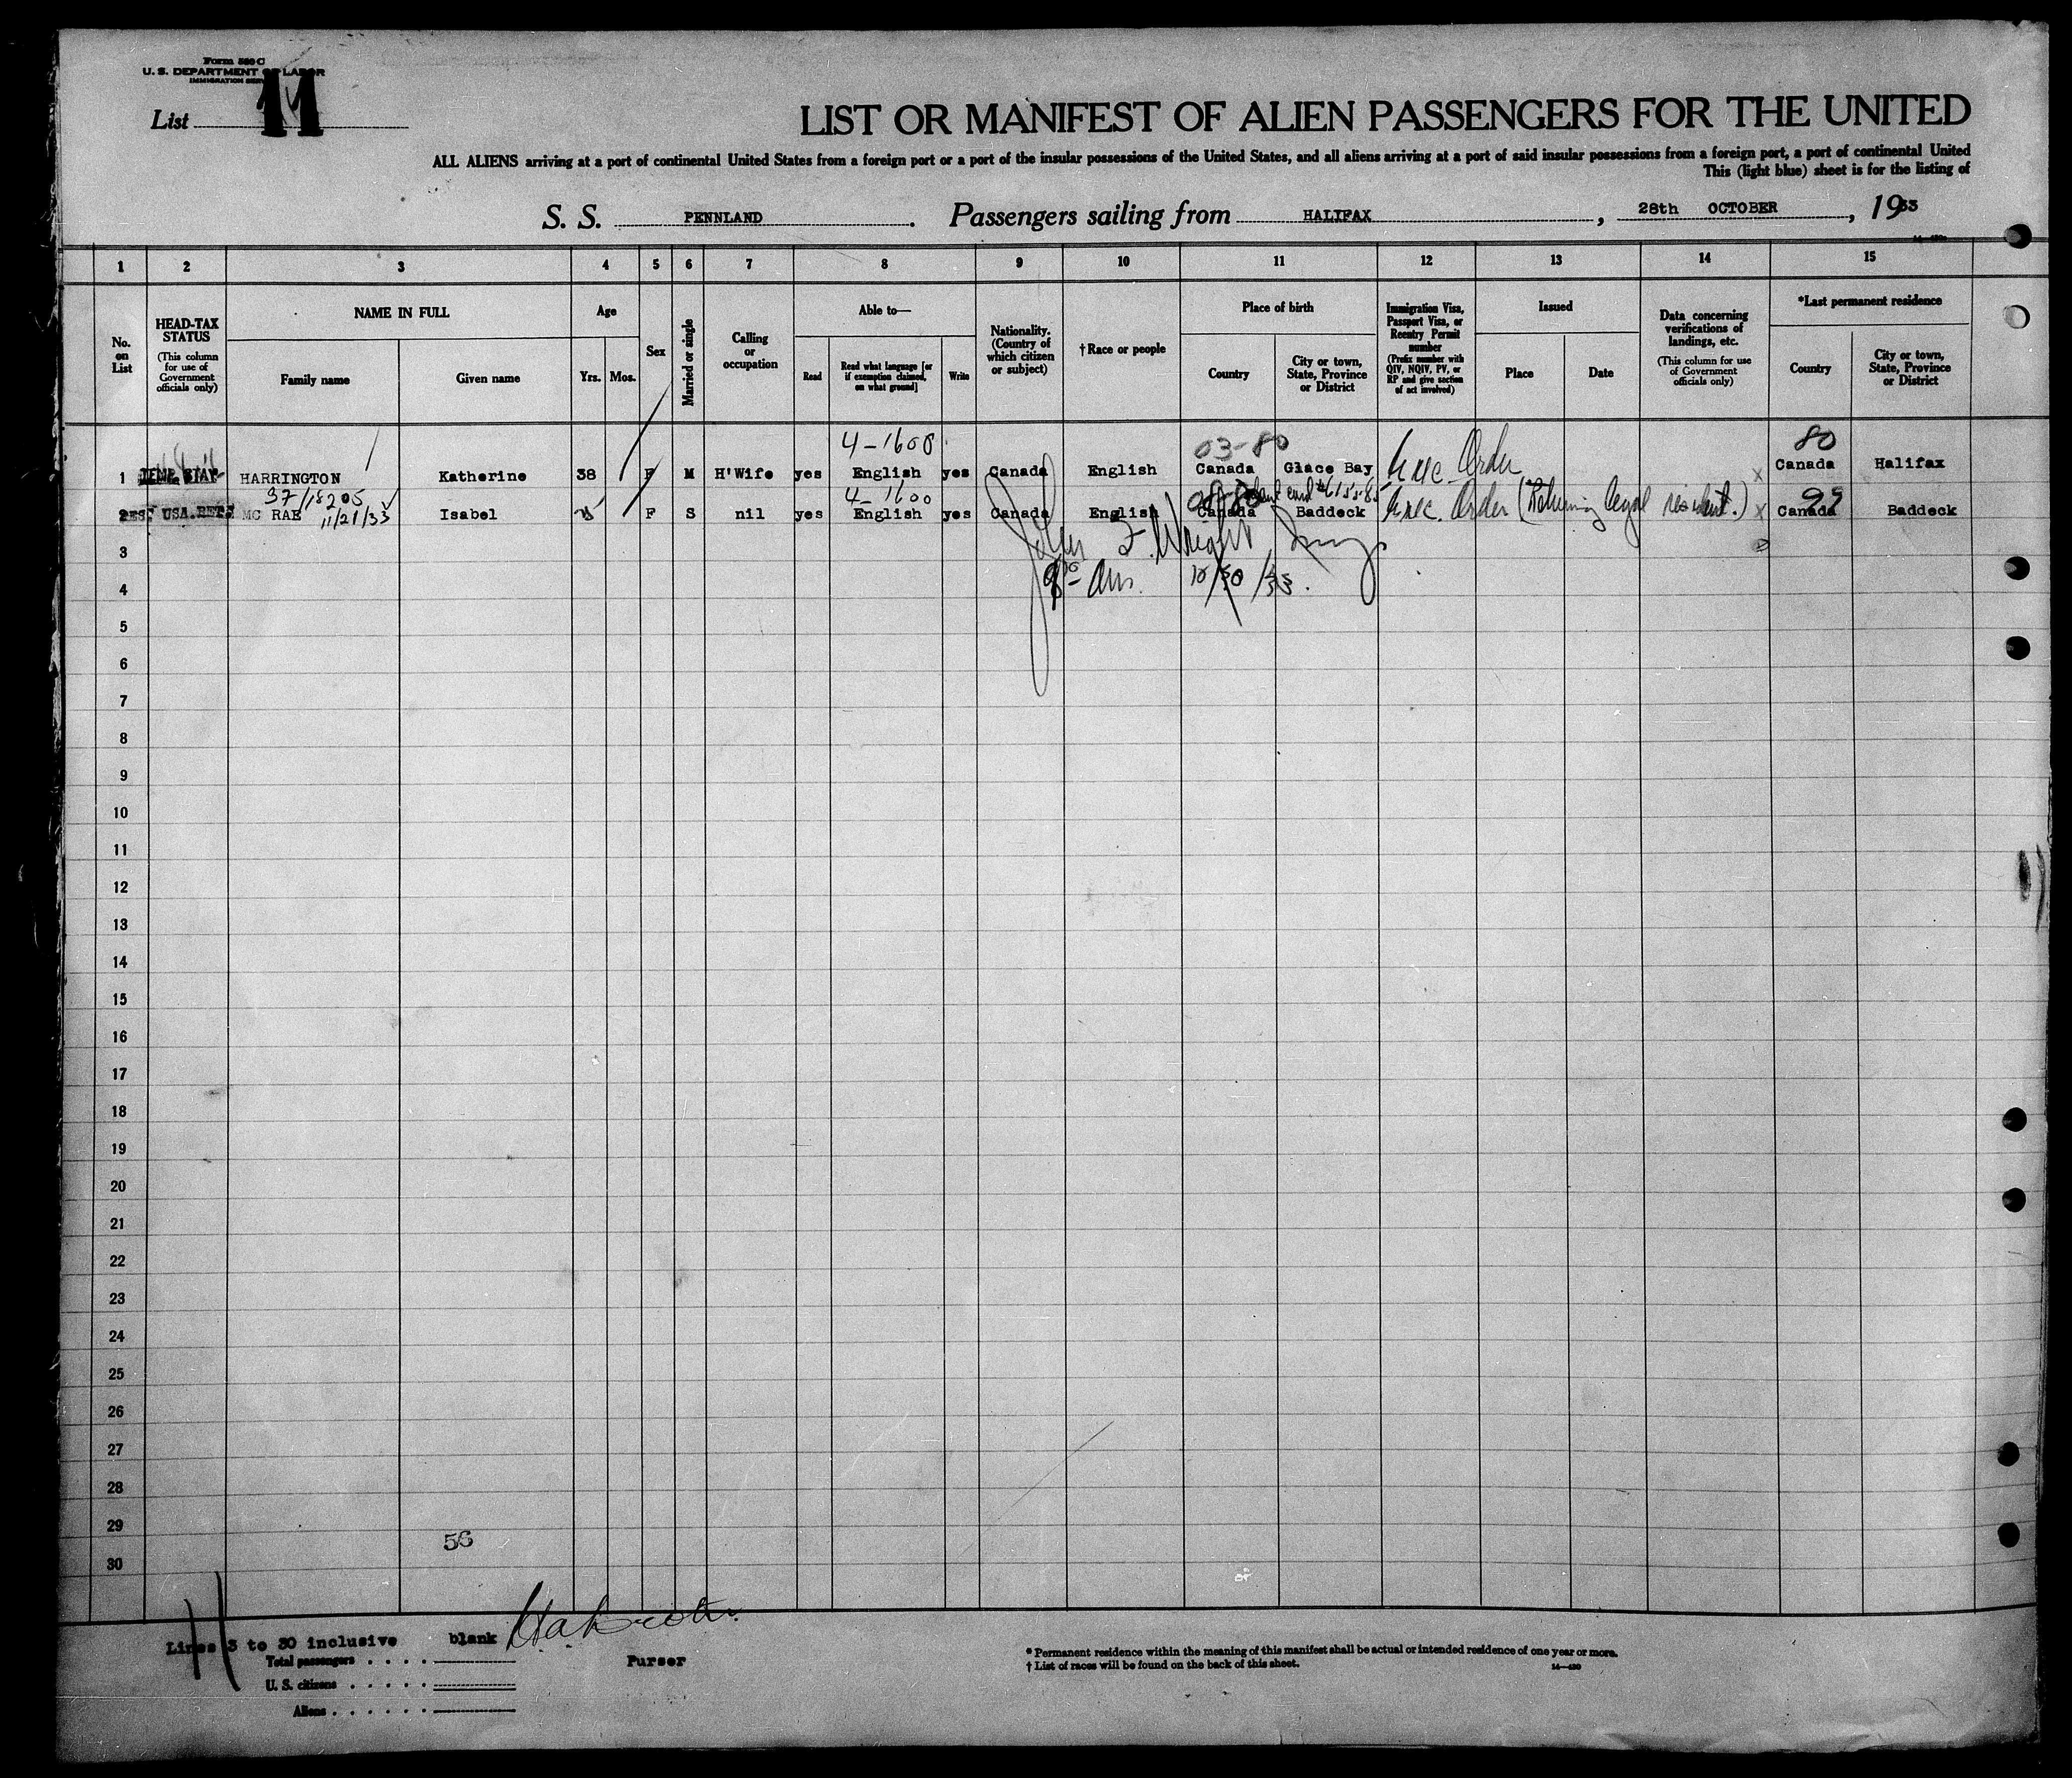 Form 500 C
U. S. DEPARTMENT OF LABOR
IMMIGRATION SERVICE
List 11
LIST OR MANIFEST OF ALIEN PASSENGERS FOR THE UNITED
ALL ALIENS arriving at a port of continental United States from a foreign port or a port of the insular possessions of the United States, and all aliens arriving at a port of said insular possessions from a foreign port, a port of continental United
This (light blue) sheet is for the listing of
S. S. PENNLAND. Passengers sailing from HALIFAX, 28th OCTOBER, 1933
1 2 3 4 5 6 7 8 9 10 11 12 13 14 15
No. on List
HEAD-TAX STATUS
(This column for use of Government officials only)
NAME IN FULL
Family name
Given name
Age
Yrs. Mos.
Sex
Married or single
Calling or occupation
Able to—
Read
Read what language [or if exemption claimed, on what ground]
Write
Nationality. (Country of which citizen or subject)
†Race or people
Place of birth
Country
City or town, State, Province or District
Immigration Visa, Passport Visa, or Reentry Permit number
(Prefix number with QIV, NQIV, PV, or RP and give section of act involved)
Issued
Place
Date
Data concerning verifications of landings, etc.
(This column for use of Government officials only)
*Last permanent residence
Country
City or town, State, Province or District
4-1608 03-80 80
1 TEMP. STAY HARRINGTON Katherine 38 F M H'Wife yes English yes Canada English Canada Glace Bay Exec. Order Canada Halifax
37/18205 4-1600 99
11/21/33
2 USA. RET. MC RAE Isabel F S nil yes English yes Canada English Canada Baddeck Exec. Order (Returning legal resident.) Canada Baddeck
3 F. Wright Insp
4 10/30/33.
5
6
7
8
9
10
11
12
13
14
15
16
17
18
19
20
21
22
23
24
25
26
27
28
29
56
30
Lines 3 to 30 inclusive blank
Total passengers
Purser
U. S. citizens
Aliens
* Permanent residence within the meaning of this manifest shall be actual or intended residence of one year or more.
† List of races will be found on the back of this sheet.
14—430